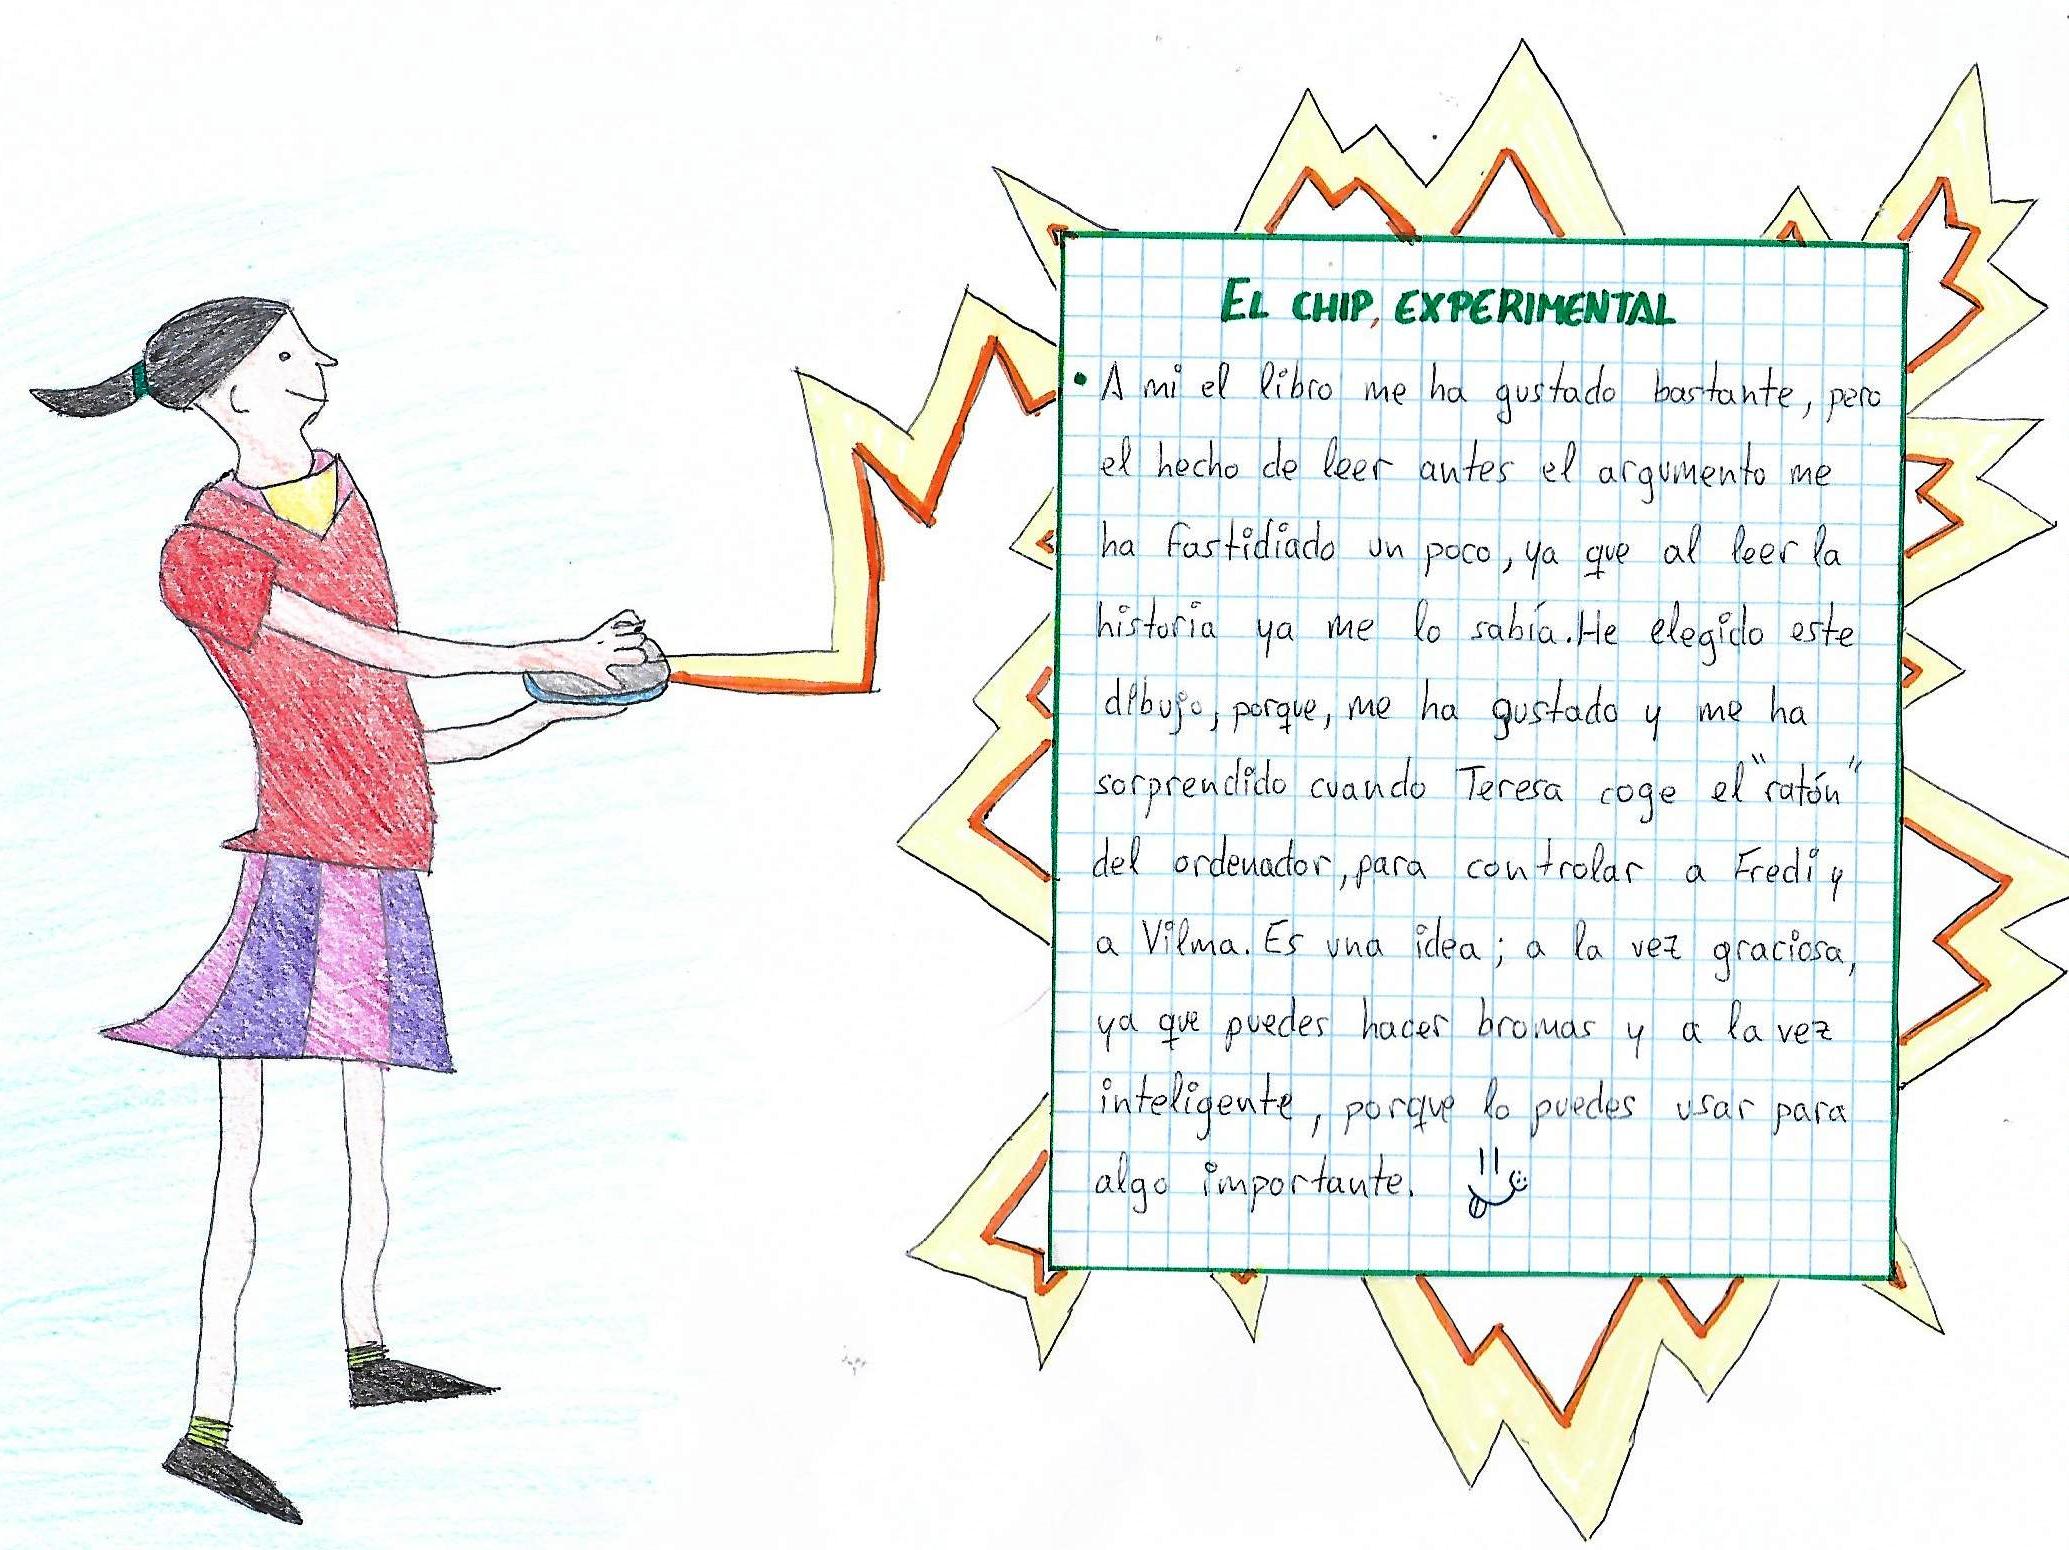 EL CHIP, EXPERIMENTAL
• A mi el libro me ha gustado bastante, pero
el hecho de leer antes el argumento me
ha fastidiado un poco, ya que al leer la
historia ya me lo sabía. He elegido este
dibujo, porque, me ha gustado y me ha
sorprendido cuando Teresa coge el "ratón"
del ordenador, para controlar a Fredi y
a Vilma. Es una idea; a la vez graciosa,
ya que puedes hacer bromas y a la vez
inteligente, porque lo puedes usar para
algo importante.